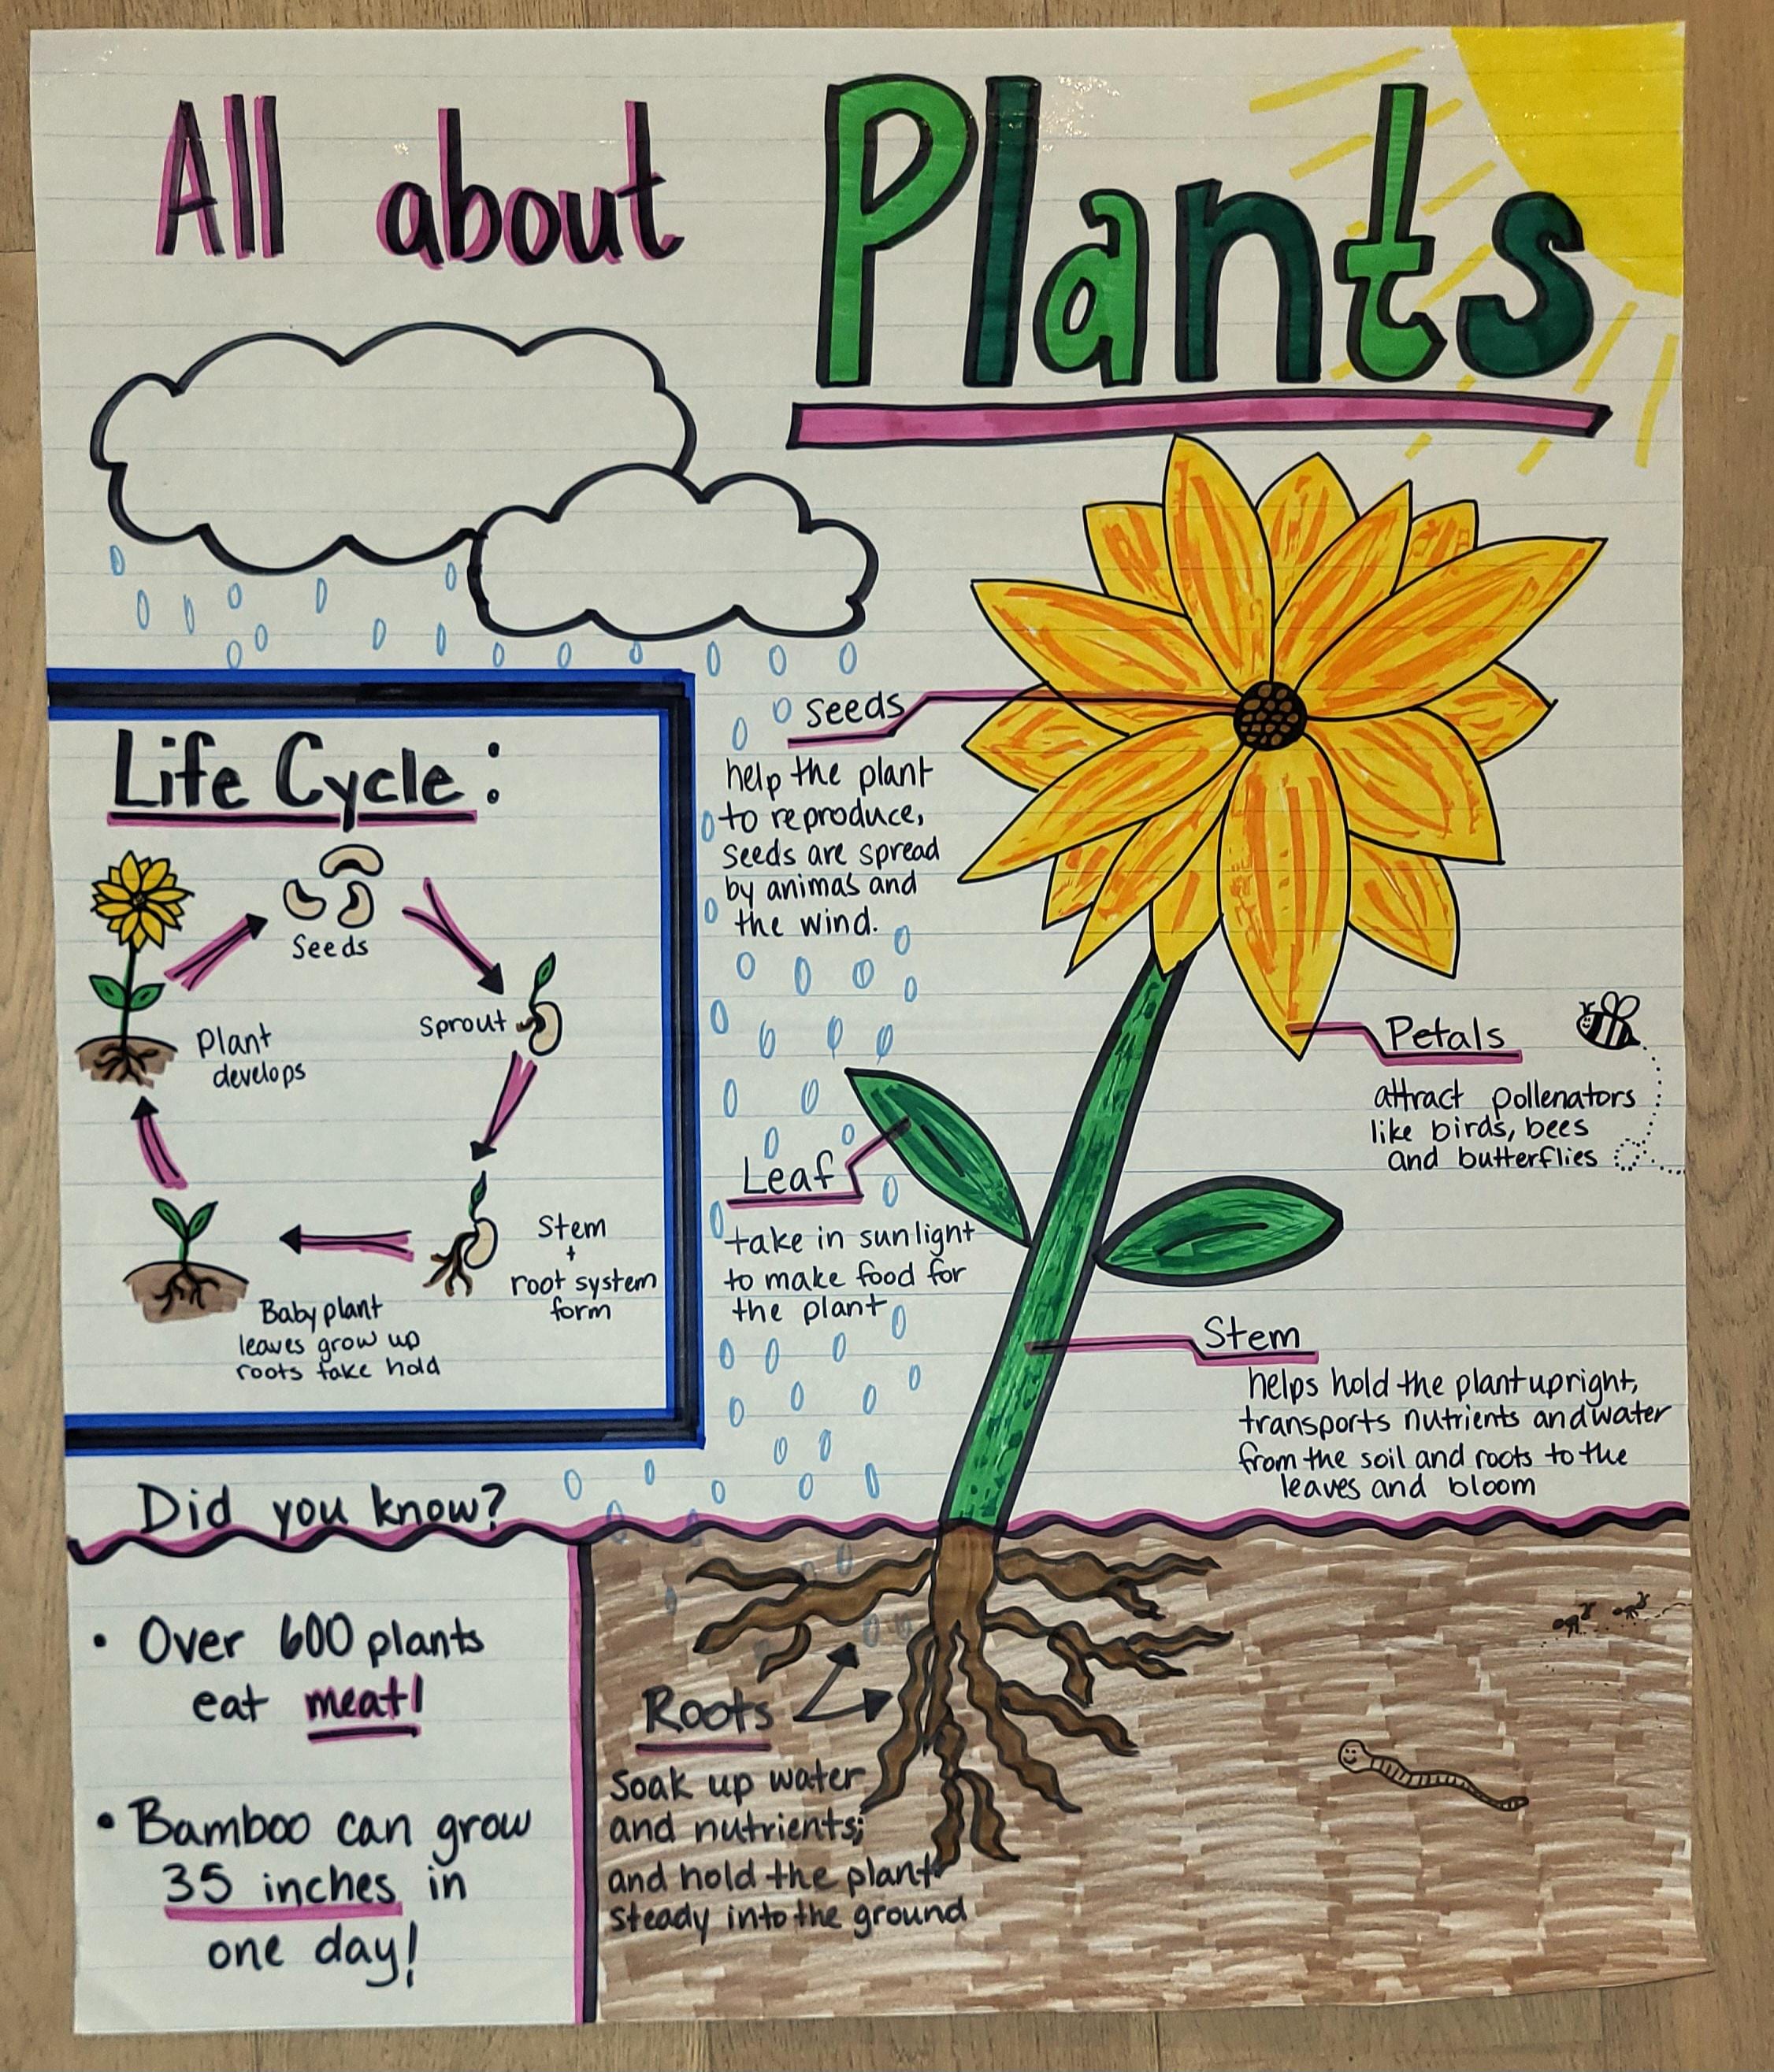 All about Plants
Life Cycle:
Seeds
Sprout
Stem
+
root system
form
Baby plant
leaves grow up
roots take hold
Plant
develops
seeds
help the plant
to reproduce,
seeds are spread
by animas and
the wind.
Petals
attract pollenators
like birds, bees
and butterflies
Leaf
take in sunlight
to make food for
the plant
Stem
helps hold the plant upright,
transports nutrients and water
from the soil and roots to the
leaves and bloom
Did you know?
• Over 600 plants
eat meat!
• Bamboo can grow
35 inches in
one day!
Roots
Soak up water
and nutrients;
and hold the plant
steady into the ground